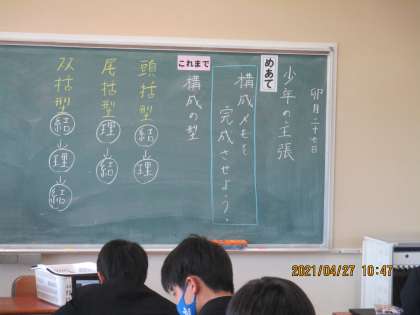 卯月二十七日
少年の主張
めあて
構成メモを
完成させよう。
これまで
構成の型
頭括型 結→理
尾括型 理→結
双括型 結→理→結
2021/04/27 10:47